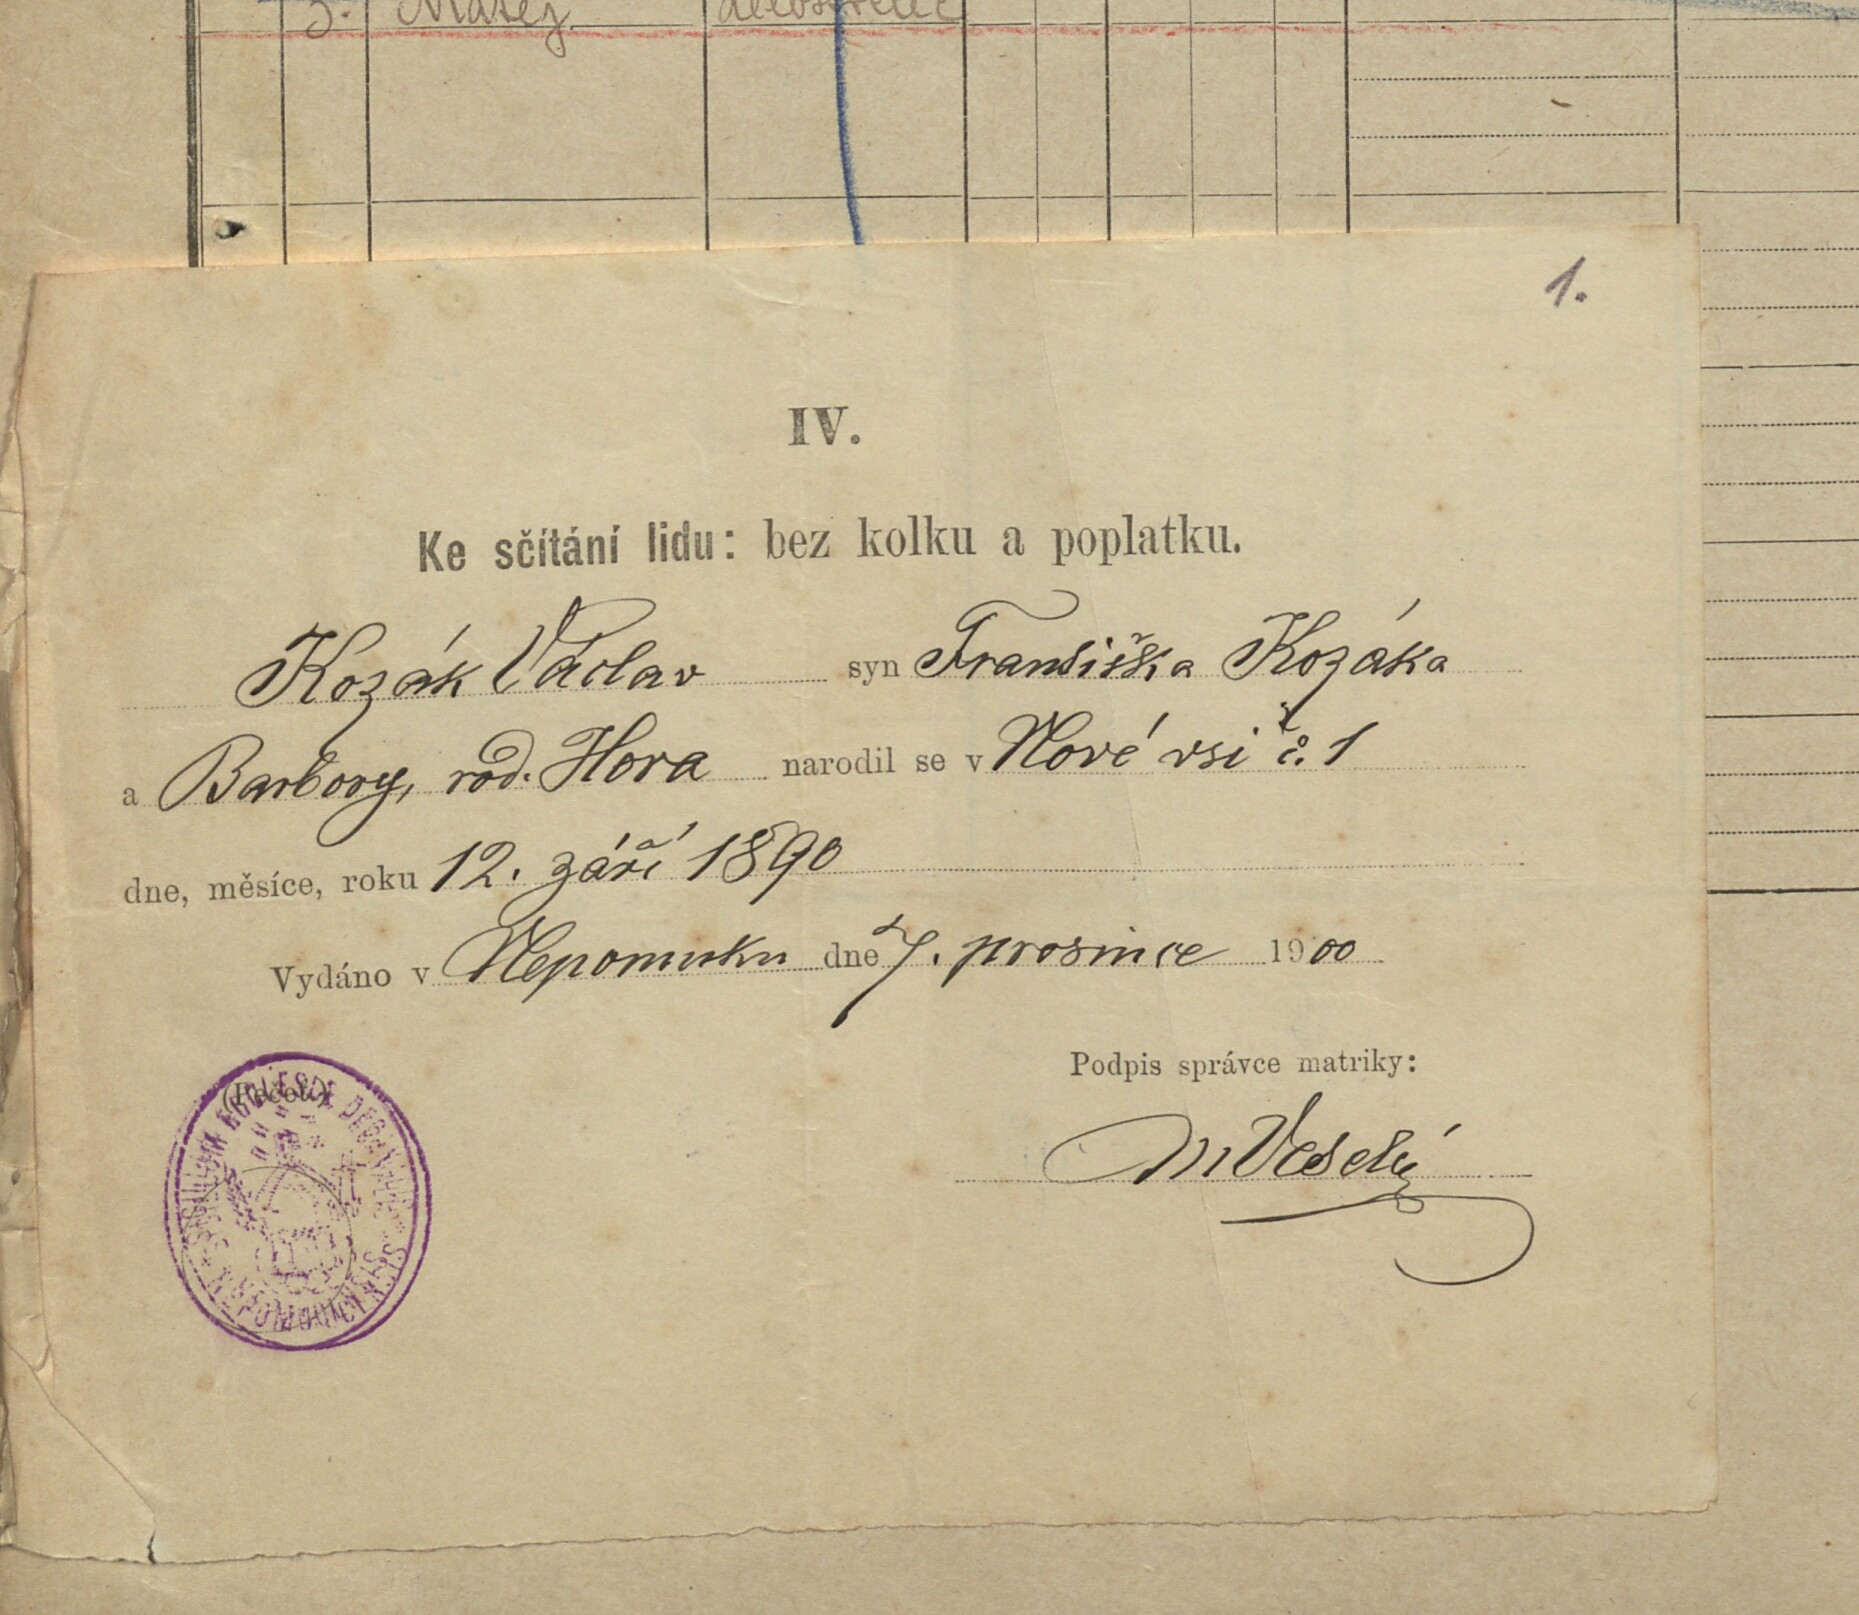 3. Matěj
1.
IV.
Ke sčítání lidu: bez kolku a poplatku.
Kozák Václav syn Františka Kozáka
a Barbory, rod. Hora narodil se v Nové vsi č. 1
dne, měsíce, roku 12. září 1890
Vydáno v Nepomuku dne 7. prosince 1900
(Pečeť.)
Podpis správce matriky:
Veselý
NEPOMUCENSIS